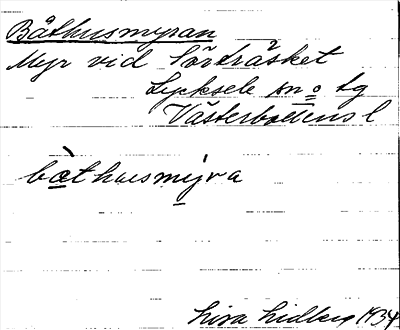 Båthusmyran
Myr vid Sörträsket
Lycksele sn o tg
Västerbottens l
bòthusmýra
Lisa Lidberg 1934